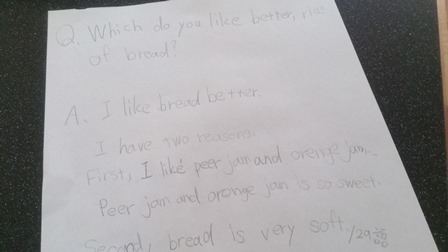 Q. Which do you like better, rice
of bread?
A. I like bread better.
I have two reasons.
First, I like peer jam and orenge jam.
Peer jam and orenge jam is so sweet.
Second, bread is very soft. /29